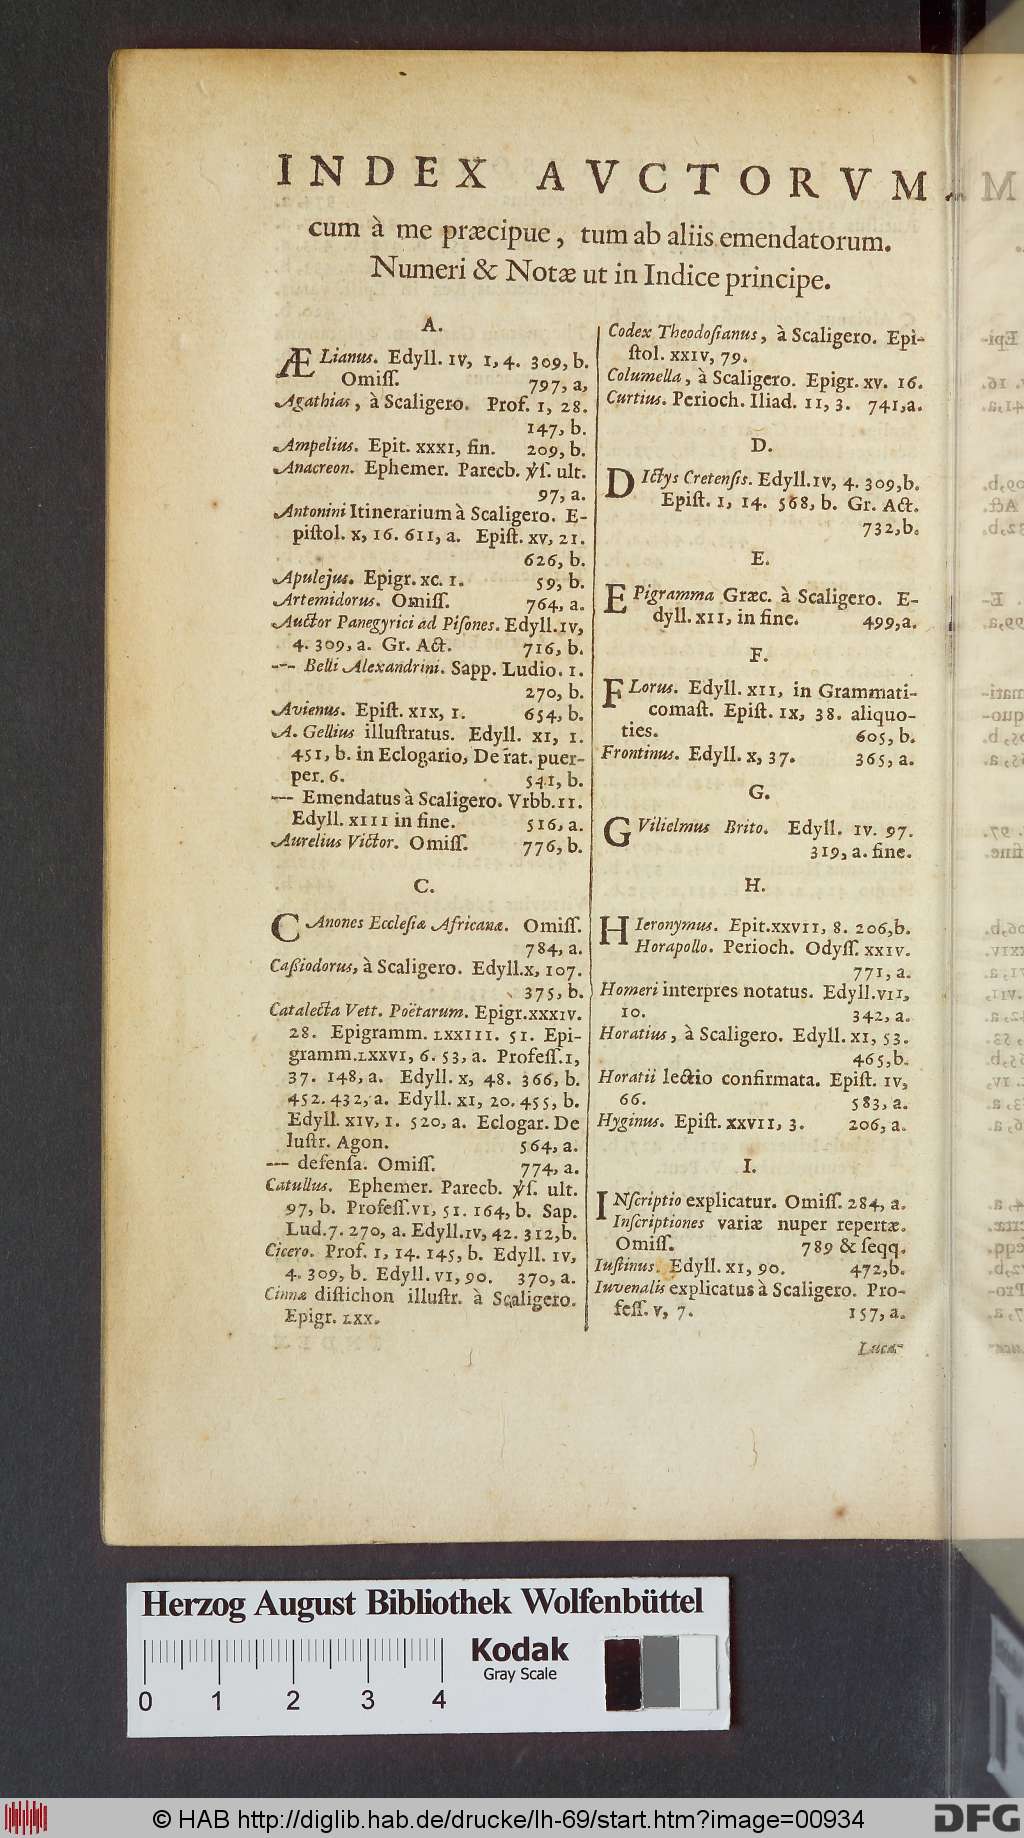 INDEX AVCTORVM
cum à me præcipue, tum ab aliis emendatorum.
Numeri & Notæ ut in Indice principe.
A.
ÆLianus. Edyll. IV, 1, 4. 309, b.
Omiſſ. 797, a,
Agathias, à Scaligero. Prof. 1, 28.
147, b.
Ampelius. Epit. XXXI, fin. 209, b.
Anacreon. Ephemer. Parecb. ult.
97, a.
Antonini Itinerarium à Scaligero. E-
piſtol. X, 16. 611, a. Epiſt. XV, 21.
626, b.
Apulejus. Epigr. XC. 1. 59, b.
Artemidorus. Omiſſ. 764, a.
Auctor Panegyrici ad Piſones. Edyll. IV,
4. 309, a. Gr. Act. 716, b.
--- Belli Alexandrini. Sapp. Ludio. 1.
270, b.
Avienus. Epiſt. XIX, 1. 654, b.
A. Gellius illuſtratus. Edyll. XI, 1.
451, b. in Eclogario, De rat. puer-
per. 6. 541, b.
--- Emendatus à Scaligero. Vrbb. 11.
Edyll. XIII in fine. 516, a.
Aurelius Victor. Omiſſ. 776, b.
C.
CAnones Eccleſiæ Africanæ. Omiſſ.
784, a.
Caßiodorus, à Scaligero. Edyll. X, 107.
375, b.
Catalecta Vett. Poëtarum. Epigr. XXXIV.
28. Epigramm. LXXIII. 51. Epi-
gramm. LXXVI, 6. 53, a. Profeſſ. 1,
37. 148, a. Edyll. X, 48. 366, b.
452. 432, a. Edyll. XI, 20. 455, b.
Edyll. XIV, 1. 520, a. Eclogar. De
luſtr. Agon. 564, a.
--- defenſa. Omiſſ. 774, a.
Catullus. Ephemer. Parecb. ult.
97, b. Profeſſ. VI, 51. 164, b. Sap.
Lud. 7. 270, a. Edyll. IV, 42. 312, b.
Cicero. Prof. 1, 14. 145, b. Edyll. IV,
4. 309, b. Edyll. VI, 90. 370, a.
Cinnæ diſtichon illuſtr. à Scaligero.
Epigr. LXX.
Codex Theodoſianus, à Scaligero. Epi-
ſtol. XXIV, 79.
Columella, à Scaligero. Epigr. XV. 16.
Curtius. Perioch. Iliad. 11, 3. 741, a.
D.
DIctys Cretenſis. Edyll. IV, 4. 309, b.
Epiſt. 1, 14. 568, b. Gr. Act.
732, b.
E.
EPigramma Græc. à Scaligero. E-
dyll. XII, in fine. 499, a.
F.
FLorus. Edyll. XII, in Grammati-
comaſt. Epiſt. IX, 38. aliquo-
ties. 605, b.
Frontinus. Edyll. X, 37. 365, a.
G.
GVilielmus Brito. Edyll. IV. 97.
319, a. fine.
H.
HIeronymus. Epit. XXVII, 8. 206, b.
Horapollo. Perioch. Odyſſ. XXIV.
771, a.
Homeri interpres notatus. Edyll. VII,
10. 342, a.
Horatius, à Scaligero. Edyll. XI, 53.
465, b.
Horatii lectio confirmata. Epiſt. IV,
66. 583, a.
Hyginus. Epiſt. XXVII, 3. 206, a.
I.
INſcriptio explicatur. Omiſſ. 284, a.
Inſcriptiones variæ nuper repertæ.
Omiſſ. 789 & ſeqq.
Iuſtinus. Edyll. XI, 90. 472, b.
Iuvenalis explicatus à Scaligero. Pro-
feſſ. V, 7. 157, a.
Lucæ
Herzog August Bibliothek Wolfenbüttel
Kodak
Gray Scale
0 1 2 3 4
© HAB http://diglib.hab.de/drucke/lh-69/start.htm?image=00934
DFG